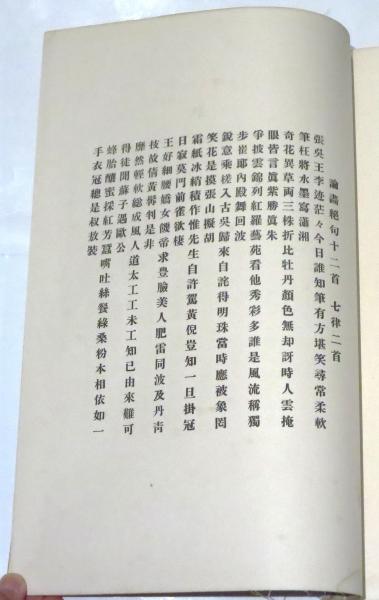 論畵絕句十二首　七律二首
張吳王李迹茫々今日誰知筆有方堪笑尋常柔軟
筆枉將水墨寫瀟湘
奇花異草両三株折比牡丹顏色無却訝時人雲掩
眼皆言眞紫勝眞朱
爭披雲錦列紅羅藝苑看他秀彩多誰是風流稱獨
步崔耶內殿舞回波
銳意乘槎入古吳歸來自詫得明珠當時應被象罔
笑花是摸張山擬胡
霜紙冰結積作惟先生自許罵黃倪豈知一旦掛冠
日寂莫門前雀欲棲
王好細腰嬌女餓帝求豊臉美人肥雷同波及丹靑
技故倩黃嚳判是非
靡然輕軟總成風人道太工工未工知已由來難可
得徒聞蘇子遇歐公
蜂胎釀蜜採紅芳蠶嘴吐絲餐綠桑粉本相依如一
手衣冠總是叔敖裝